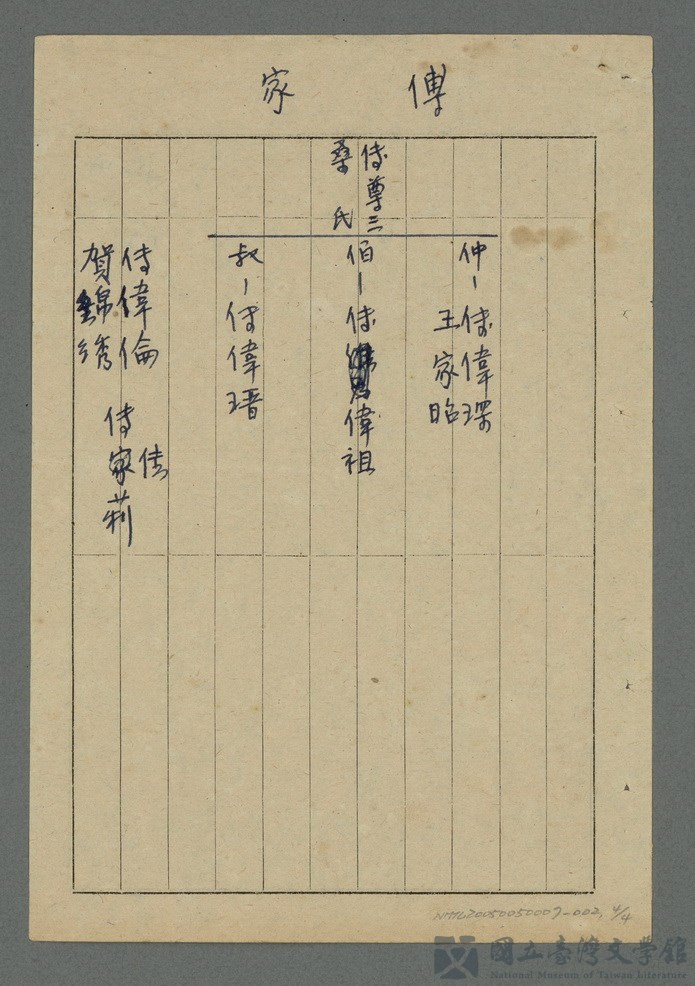 傅家
傅尊三
桑氏
仲－傅偉琛
王家昭
伯－傅偉祖
叔－傅偉瑨
傅偉倫
賀錦綉
佳
傅家莉
NMTL20050050007-002, 4/4
國立臺灣文學館
National Museum of Taiwan Literature